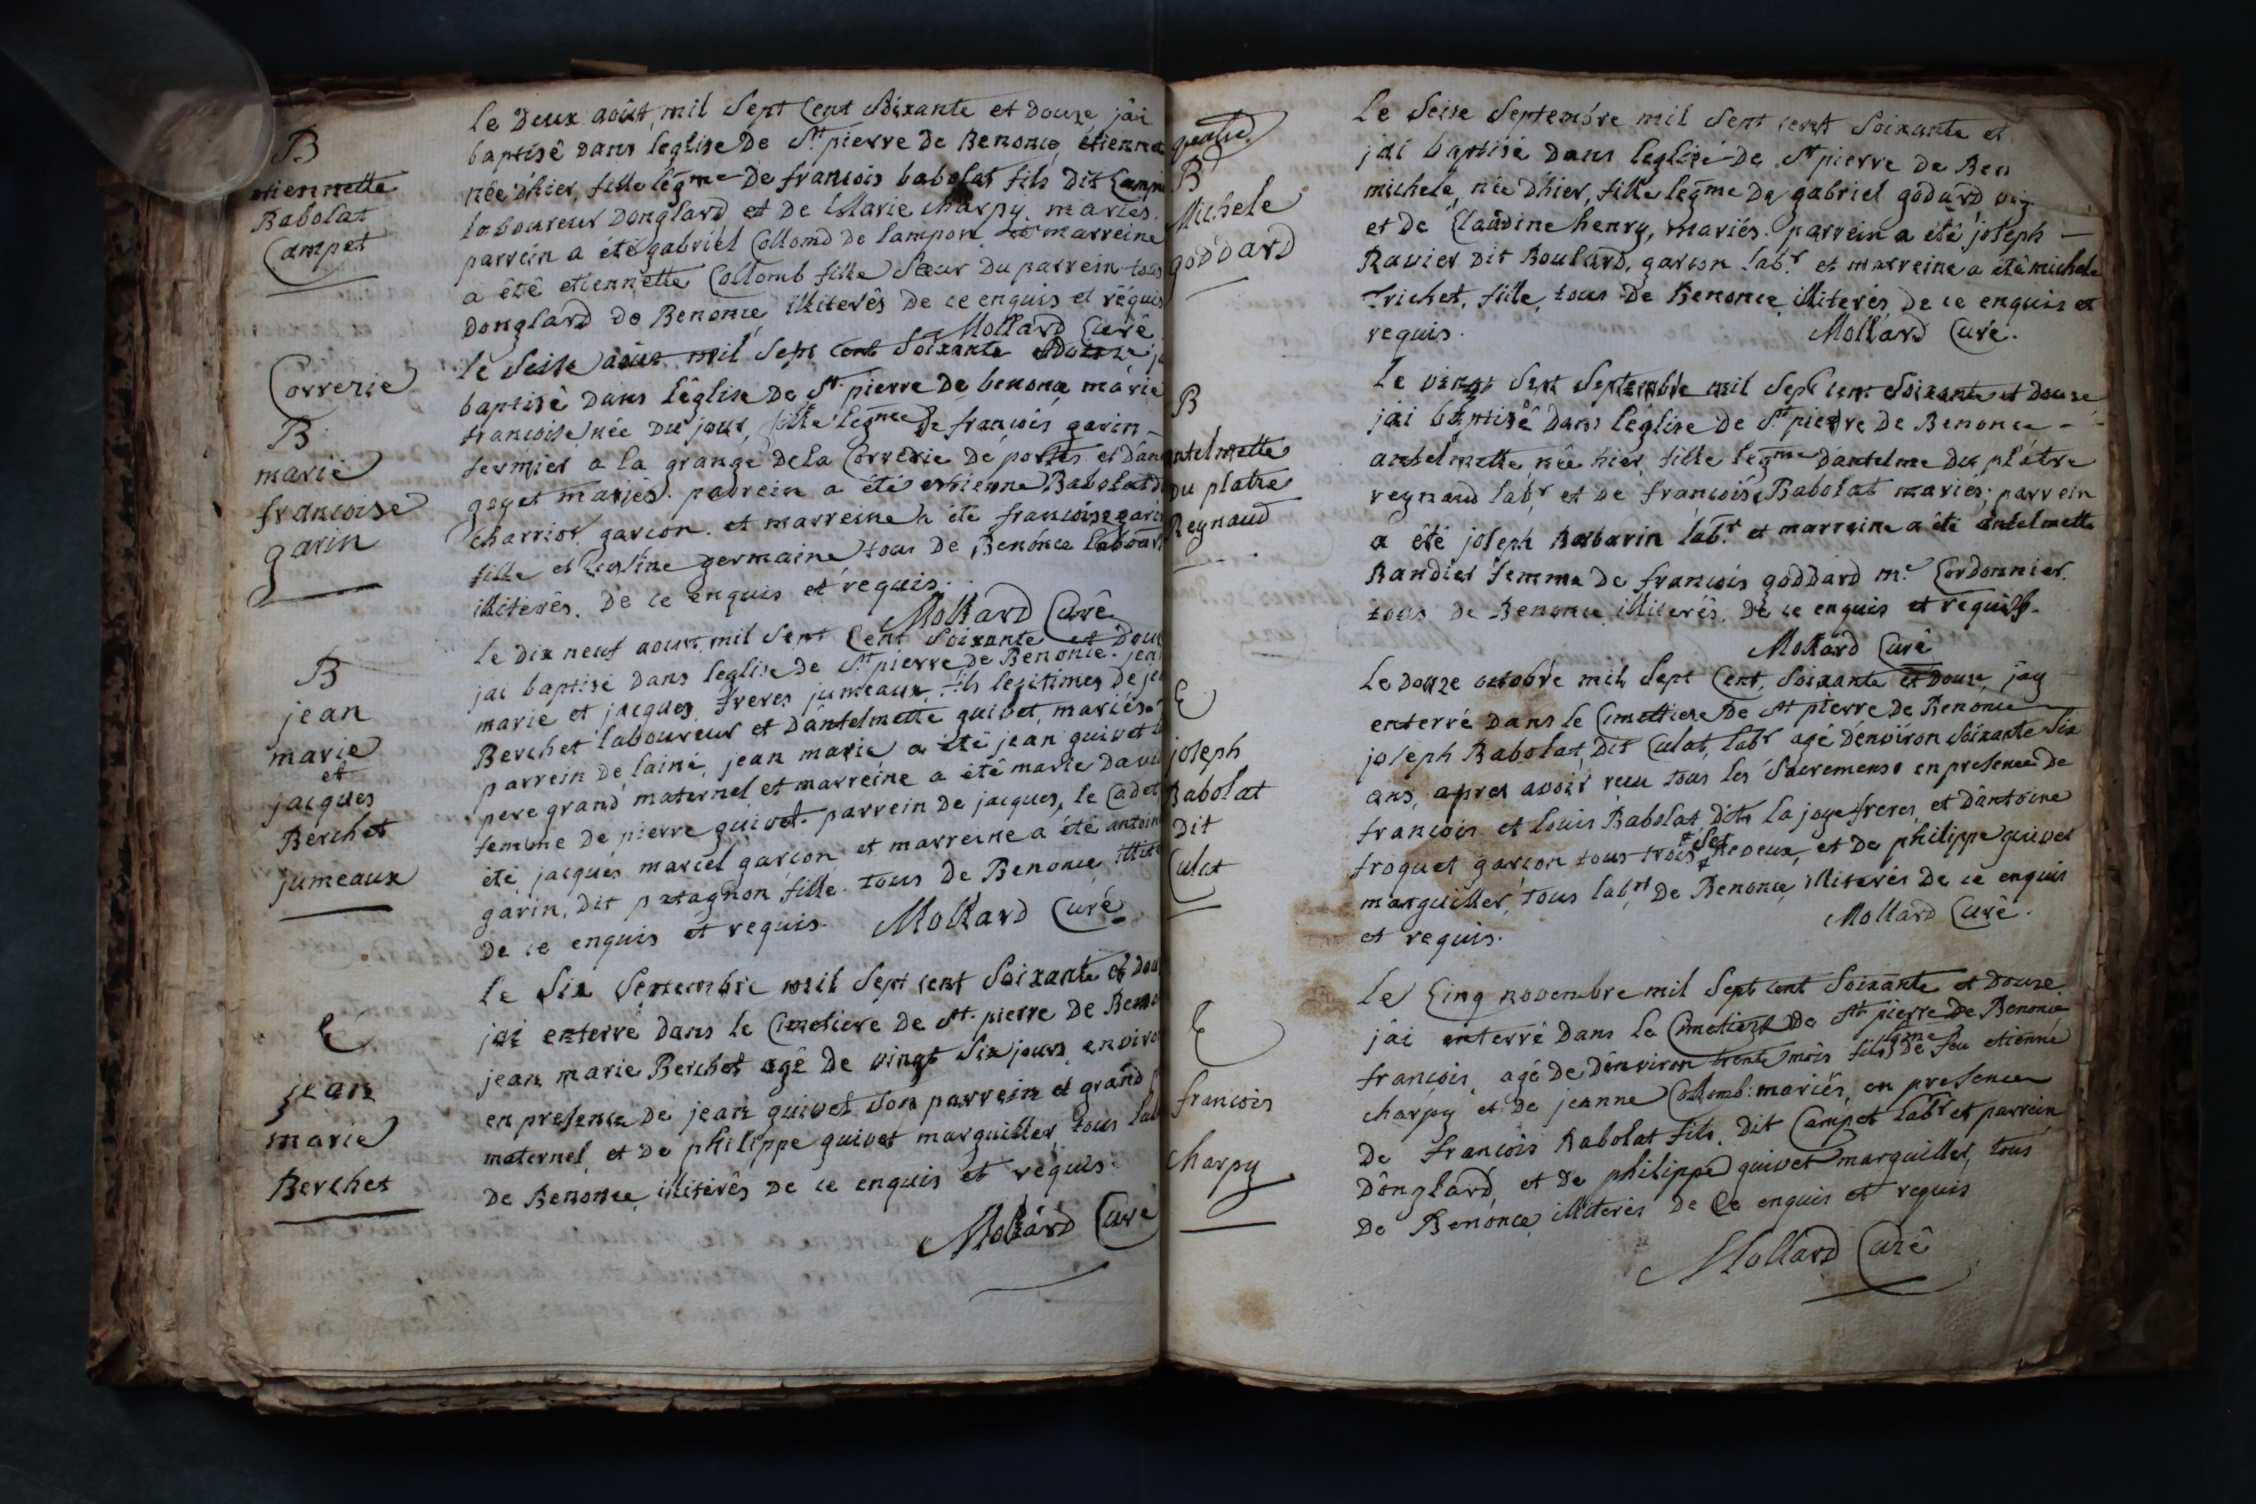 B
etiennette
Babolat
Campet
le Deux août, mil Sept Cent Soixante et Douze jâi
baptisê dans leglise De St pierre de Benonce, etienne
nëe d'hier, fille legme De francois babolat fils Dit Camp
laboureur Donglard et de Marie charpy. mariés.
parrein a étégabriel Collomd de lampon. et marreine
a êtê etiennette Collomb fille Sœur Du parrein tous
Donglard de Benonce illiterês de ce enquis et réquis
Mollard Curé
Correrie
B
marie
francoise
garin
le Seise août mil Sept Cent Soixante et Douze j
baptisê dans lêglise De St. pierre de benonce marie
francoise née Du jour, fille legme De francois garin
fermier a la grange dela Correrie de portes et Dân
goyet mariés. parrein a été ethienne Babolat D
charriot garcon. et marreine a ete francoise gari
fille et Cousine germaine tous de Benonce labour
illiterês. De ce enquis et requis.
Mollard Curê
B
jean
marie
et
jacques
Berchet
jumeaux
le dix neuf aout, mil Sept Cent Soixante et Douz
jai baptisé dans leglise de St pierre de Benonce. jean
marie et jacques freres jumeaux fils legitimes de je
Berchet laboureur et Dântelmette quivet, mariés.
parrein de lainé, jean marie a été jean quivet
pere grand maternel et marreine a été marie Davi
femme de pierre quivet. parrein de jacques, le Cadet
été jacques marcel garcon et marreine a été antoin
garin, Dit patagnon fille. tous de Benonce illite
De ce enquis et requis. Mollard Curé
E
jean
marie
Berchet
le Six Septembre mil Sept cent Soixante et dou
jai enterré dans le Cimetiere de St. pierre de Beno
jean marie Berchet agé de vingt Six jours enviro
en presence de jean quivet Son parrein et grand
maternel et de philippe quivet marguiller, tous lab
de Benonce, illiterês de ce enquis et requis.
Mollard Curé
B
Michele
goddard
Le Seise Septembre mil Sept cent Soixante et
jâi baptisé dans leglise de St pierre de Ben
michele, née Dhier, fille legme De gabriel godard vig
et de Claudine henry, mariés. parrein a êtê joseph
Ravier Dit Boulard, garcon labr. et marreine a étê michele
Trichet, fille, tous de Benonce illiterés, de ce enquis et
requis. Mollard Curé.
B
antelmette
Du platre
Reynaud
Le vingt Sept Septembre mil Sept cent Soixante et Douze
jai baptisê dans léglise de St pierre de Benonce
antelmette née hier, fille legme Dantelme Du plâtre
reynaud labr et de francoise Babolat mariés; parrein
a été joseph Barbarin labr. et marreine a êté antelmette
Randier femme de francois goddard me. Cordonnier
tous de Benonce, illiterês. de ce enquis et requis.
Mollard Curê
E
joseph
Babolat
Dit
Culat
Le douze octobre mil Sept Cent, Soixante et Douze, jay
enterré dans le Cimettiere De St pierre de Benonce
joseph Babolat, Dit Culat, labr agé denviron Soixante Six
ans, apres avoir recu tous les Sacremens. en presence de
francois et louis Babolat Dits la joye freres, et Dântoine
troquet garcon tous trois Ses neveux, et de philippe quivet
marguiller, tous labrs De Benonce, illiterés de ce enquis
et requis. Mollard Curê.
E
francois
charpy
Le Cinq novembre mil Sept cent Soixante et Douze
jâi enterré dans le Cimetiere De St pierre De Benonce
francois agé de Denviron trente mois fils lgme de feu etienne
charpy et de jeanne Collomb: mariés, en presence
De francois Babolat fils. Dit Campet labr et parrein
Dônglard, et de philippe quivet marguiller, tous
De Benonce illiteres de Ce enquis et requis
Mollard Curê